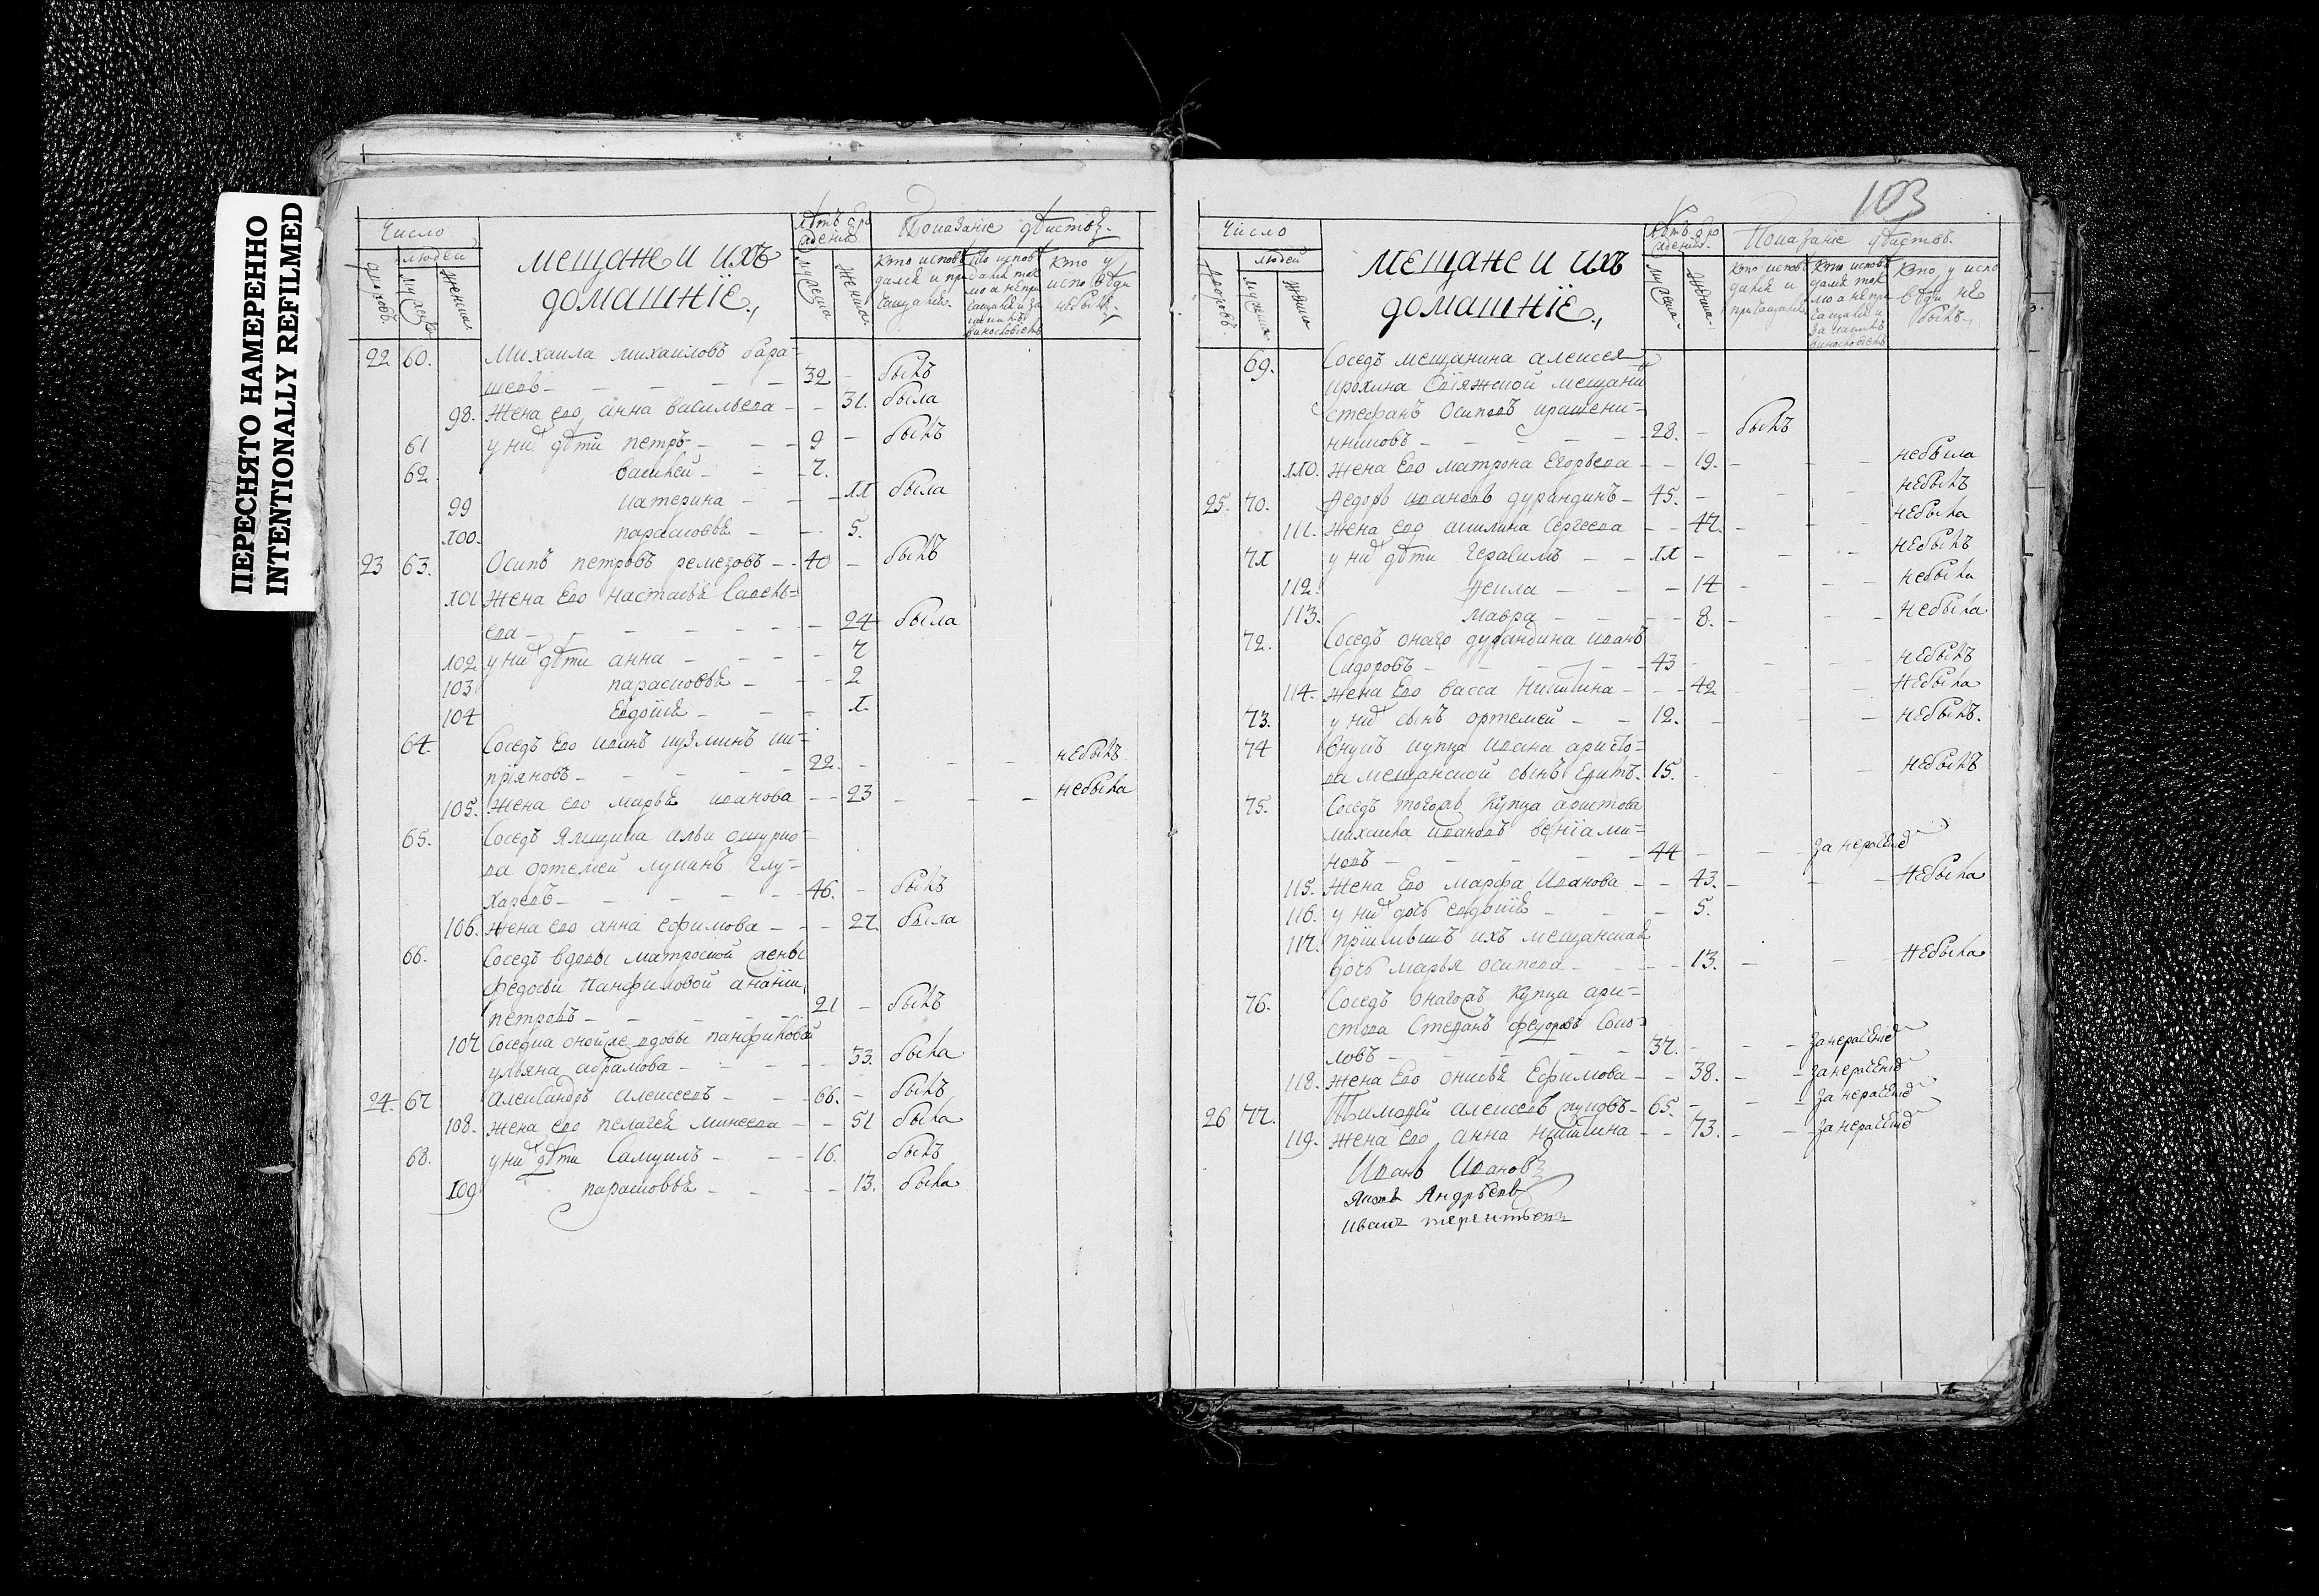 ПЕРЕСНЯТО НАМЕРЕННО
INTENTIONALLY REFILMED
Число
людей
дворовъ
мужеска
женска
мещане и ихъ
домашнїе
мужеска
женска
Показанїе дѣиствъ
22 60. Михаила михаиловъ бара=
шевъ 32 былъ
98. жена ево анна васильева 31. была
61 у них дѣти петръ 9 былъ
62 василей 7.
99 катерина 11 была
100. парасковья 5.
23 63. Осипъ петровъ ремезовъ 40 былъ
101 жена Ево настасья савель=
ева 24 была
102 у них дѣти анна 7
103 парасковья 2
104 Евдокия 1.
64 Соседъ Ево иванъ кузминъ ки=
прїяновъ 22 небылъ
105. жена ево марья иванова 23 небыла
65. Соседъ Ямщика
ва ортемей лукинъ глу=
харевъ 46. былъ
106. жена ево анна ефимова 27. была
66. Соседъ вдовы матроской жены
федосьи Панфиловой
петровъ 21 былъ
107 Соседка оной же вдовы панфиловой
ульяна абрамова 33. была
24. 67 александръ алексеевъ 66. былъ
108. жена ево пелагея минеева 51 была
68. у них дѣти Самуилъ 16. былъ
109 парасковья 13. была
103
Число
людей
дворовъ
мужеска
женска
мещане и ихъ
домашнїе
мужеска
женска
Показанїе дѣиствъ
69. Соседъ мещанина алексея
ирохина Свїяжской мещани
стефанъ Осиповъ крашени=
нниковъ 28. былъ
110. жена Ево матрона Егорьева 19. небыла
25. 70. Федоръ ивановъ дурандинъ 45. небылъ
111. жена ево акилина Сергеева 47. небыла
71 у них дѣти герасимъ 11 небылъ
112. Фекла 14 небыла
113. мавра 8. небыла
72. Соседъ онаго дурандина иванъ
Сидоровъ 43 небылъ
114. жена Ево васса Никитина 42 небыла
73. у них сынъ ортемей 12. небылъ
74 внукъ купца ивана аристо=
ва мещанской сынъ 15. небылъ
75. Соседъ тогожъ купца аристова
михаила ивановъ венїами=
новъ 44 за нерасїемъ
115. жена Ево марфа Иванова 43. небыла
116. у них дочь евдокия 5.
117. прїемышъ ихъ мещанская
дочь марья осипова 13. небыла
76. Соседъ онагожъ купца ари=
стова Стефанъ федоровъ Соко=
ловъ 37. за
118. жена Ево Ефимова 38. за
26 77. Тимофей алексеевъ 65. за
119. жена ево анна никитина 73. за
Иванъ Ивановъ
Яковъ Андрѣевъ
иванъ терентьевъ